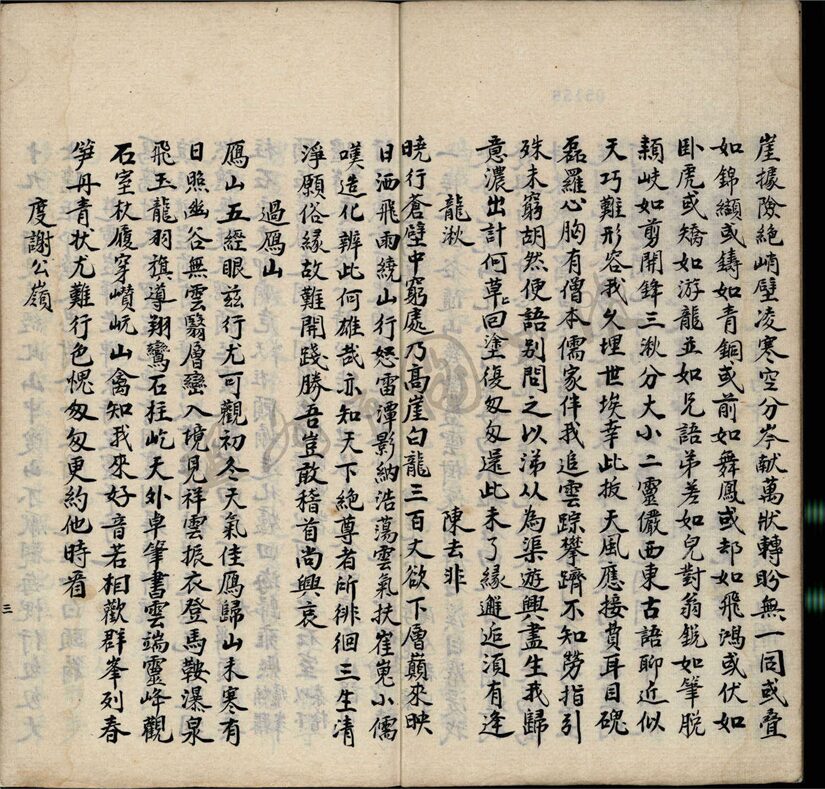 崖據險絕峭壁凌寒空分岑献萬狀轉盼無一同或疊
如錦纈或鑄如青銅或前如舞鳳或却如飛鴻或伏如
卧虎或矯如游龍並如兄語弟差如兒對翁銳如筆脱
穎岐如剪開鋒三湫分大小二靈儼西東古語聊近似
天巧難形容我久埋世埃幸此扳天風應接費耳目磈
磊羅心胸有僧本儒家伴我追雲踪攀躋不知勞指引
殊未窮胡然便語別問之以涕从為渠遊興盡生我歸
意濃出計何草〻回塗復匆匆還此未了緣邂逅湏有逢
龍湫
陳去非
曉行蒼壁中窮處乃高崖白龍三百丈欲下層巔來映
日洒飛雨繞山行怒雷潭影納浩蕩雲氣扶崔嵬小儒
嘆造化辨此何雄哉亦知天下絕尊者所徘徊三生清
淨願俗緣故難開踐勝吾豈敢稽首尚興哀
過鴈山
鴈山五經眼兹行尤可觀初冬天氣佳鴈歸山未寒有
日照幽谷無雲翳層巒入境見祥雲振衣登馬鞍瀑泉
飛玉龍羽旗導翔鸞石柱屹天外卓筆書雲端靈峰觀
石室杖履穿巑岏山禽知我來好音若相歡群峯列春
笋丹青狀尤難行色愧匆匆更約他時看
度謝公嶺
三